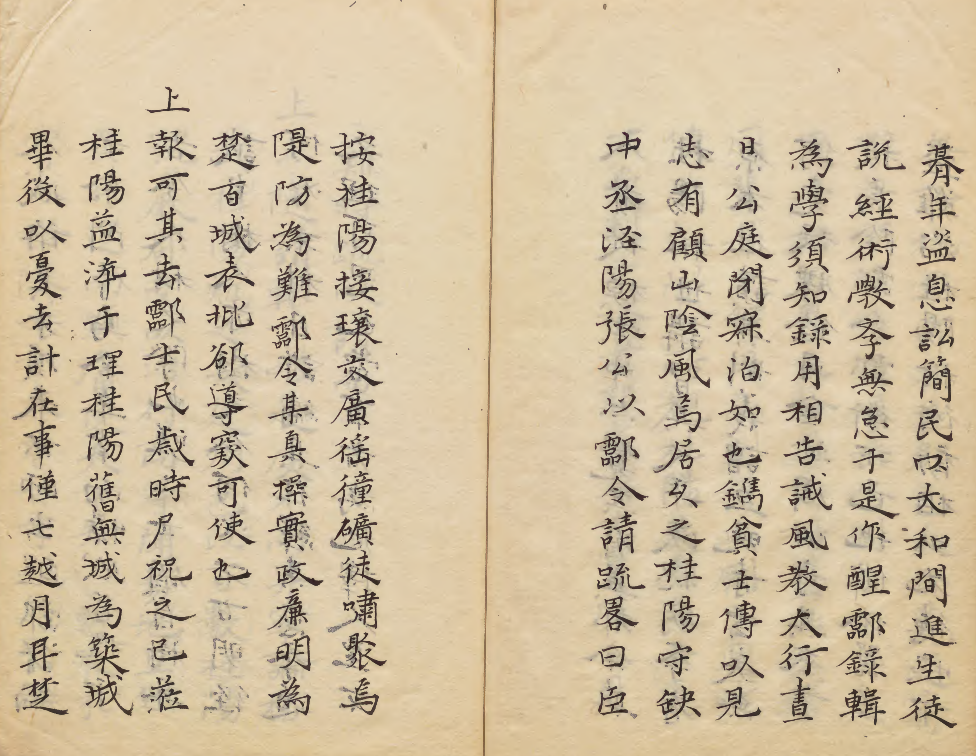 朞年盜息訟簡民㠯大和間進生徒
說經術斆孝無怠于是作醒酃錄輯
為學須知錄用相告誡風教大行晝
日公庭閉寐泊如也鐫貧士傳㕥見
志有顧山陰風焉居久之桂陽守缺
中丞涇陽張公以酃令請疏畧曰臣
按桂陽接壤交廣徭獞礦徒嘯聚焉
隄防為難酃令某真操實政廉明為
楚百城表批郤導窾可使也
上報可其去酃士民歲時尸祝之已蒞
桂陽益滓于理桂陽舊無城為築城
畢役㕥憂去計在事僅七越月耳楚